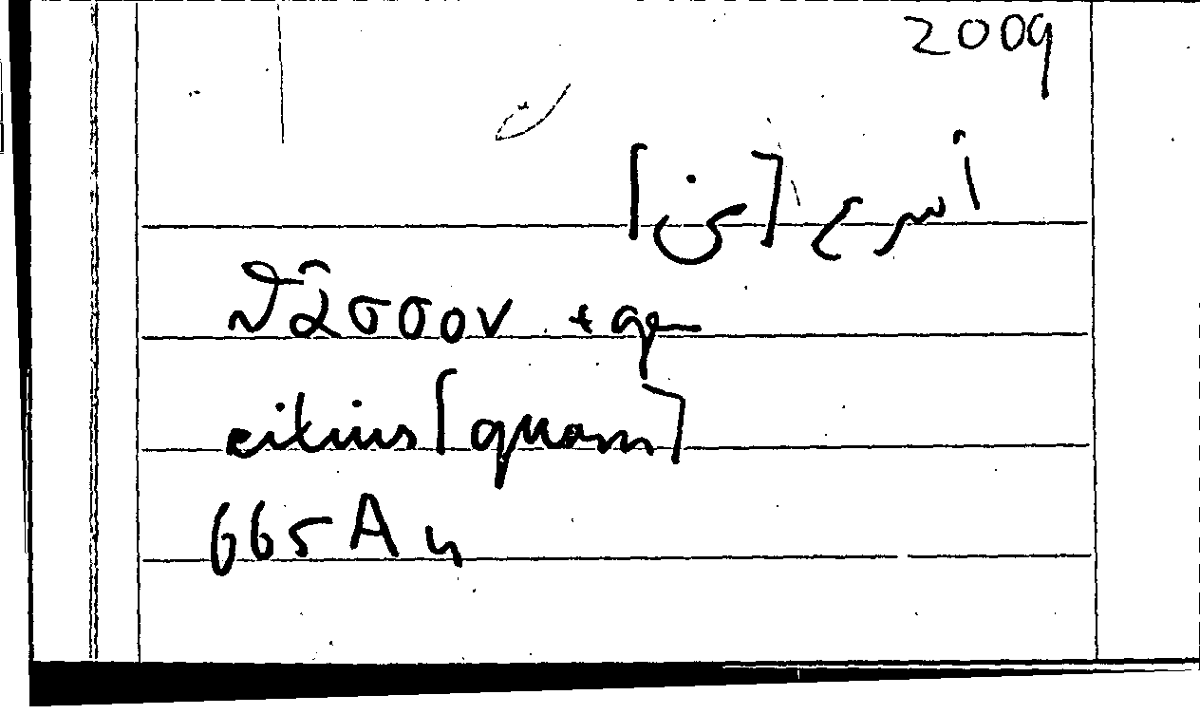 2009
أسرع [من]
θᾶσσον + ge
citius [quam]
665A 4